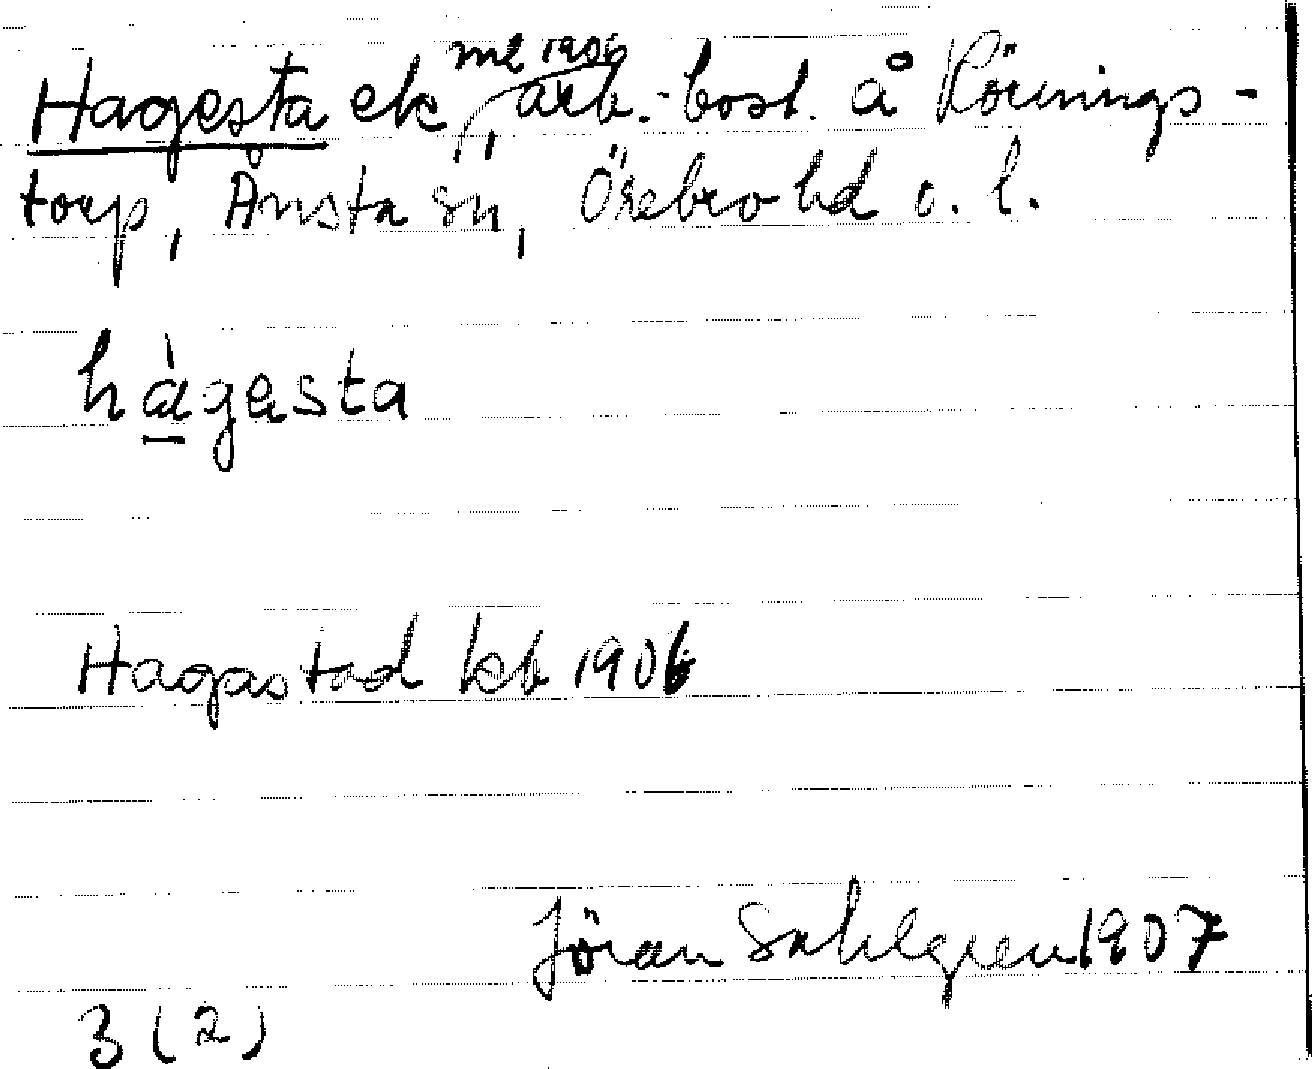 Hagesta ek, ml 1906 arb.-bost. å Körnings-
torp, Ånsta sn, Örebro hd o. l.
hàgesta
Hagastad kb 1906
Jöran Sahlgren 1907
3 (2)